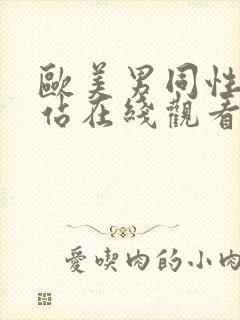 歐美男同性
佔在綫觀看
愛喫肉的小肉